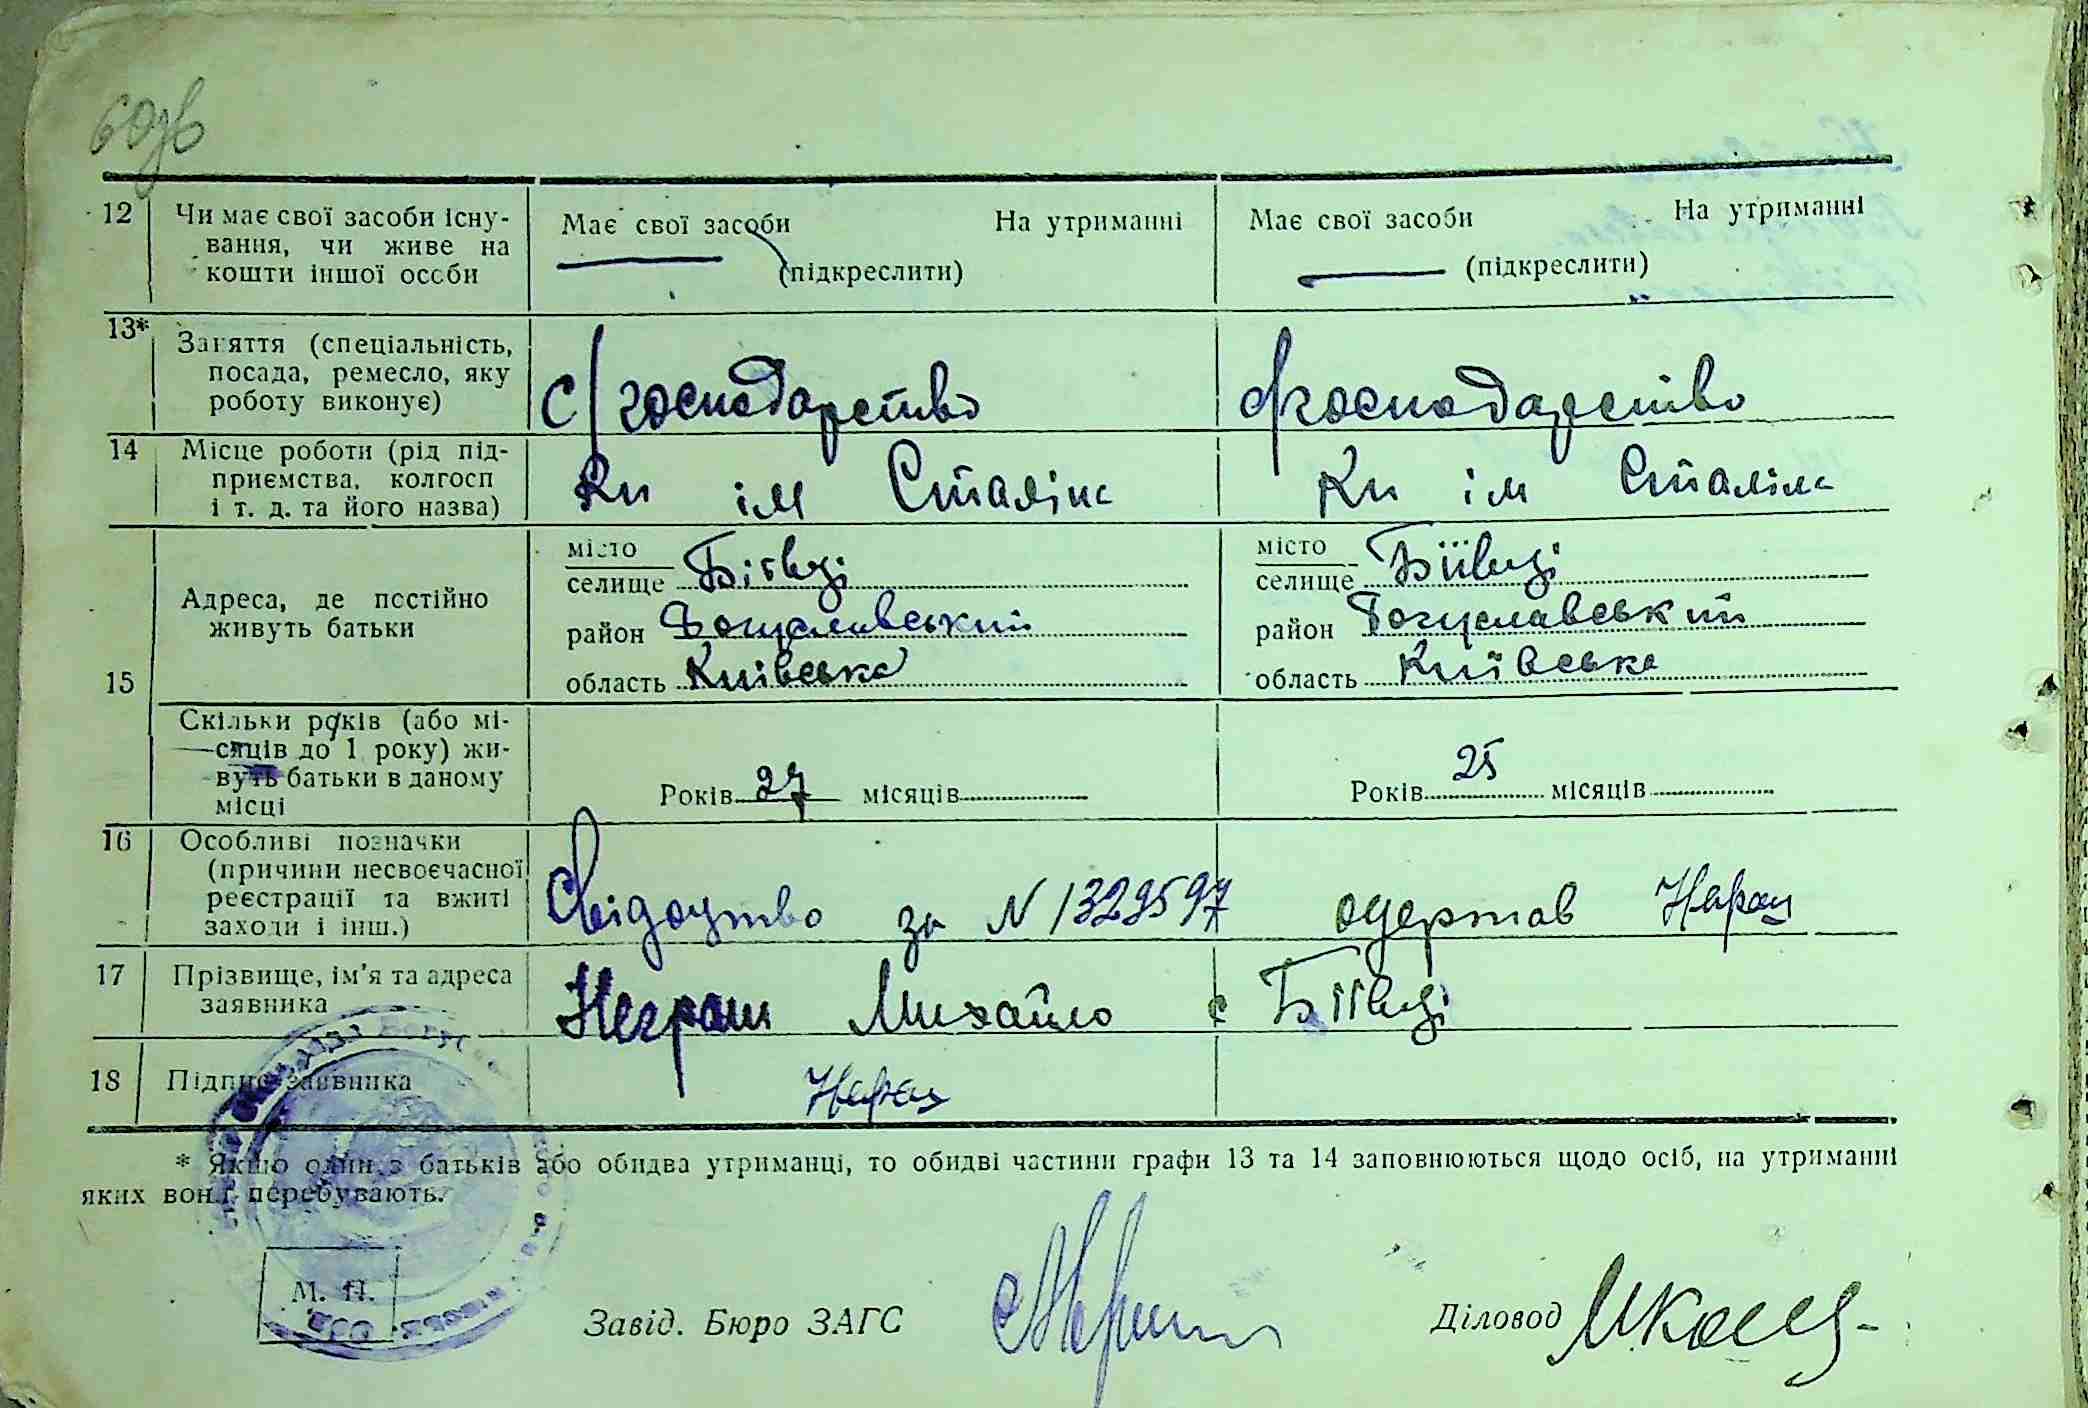 60зв
12 Чи має свої засоби існу- Має свої засоби На утриманні Має свої засоби На утриманні
вання, чи живе на
кошти іншої особи (підкреслити) (підкреслити)
13* Заняття (спеціальність,
посада, ремесло, яку с/господарство с/господарство
роботу виконує)
14 Місце роботи (рід під-
приємства, колгосп Кп ім Сталіна Кп ім Сталіна
і т. д. та його назва)
місто місто
селище Біївці селище Біївці
15 Адреса, де постійно
живуть батьки район Богуславський район Богуславський
область Київська область Київська
Скільки років (або мі-
сяців до 1 року) жи-
вуть батьки в даному Років 27 місяців Років 25 місяців
місці
16 Особливі позначки
(причини несвоєчасної
реєстрації та вжиті Свідоцтво за N 1329597 одержав
заходи і інш.)
17 Прізвище, ім'я та адреса Неграш Михайло с Біївці
заявника
18 Підпис заявника
* Якщо один з батьків або обидва утриманці, то обидві частини графи 13 та 14 заповнюються щодо осіб, на утриманні
яких вони перебувають.
М. П.
Завід. Бюро ЗАГС Діловод